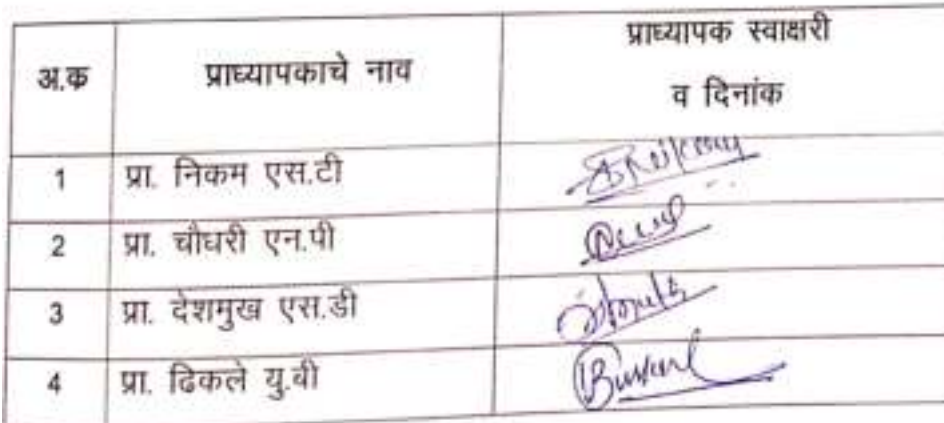 अ.क प्राध्यापकाचे नाव प्राध्यापक स्वाक्षरी
व दिनांक
1 प्रा. निकम एस.टी
2 प्रा. चौधरी एन.पी
3 प्रा. देशमुख एस.डी
4 प्रा. ढिकले यु.वी